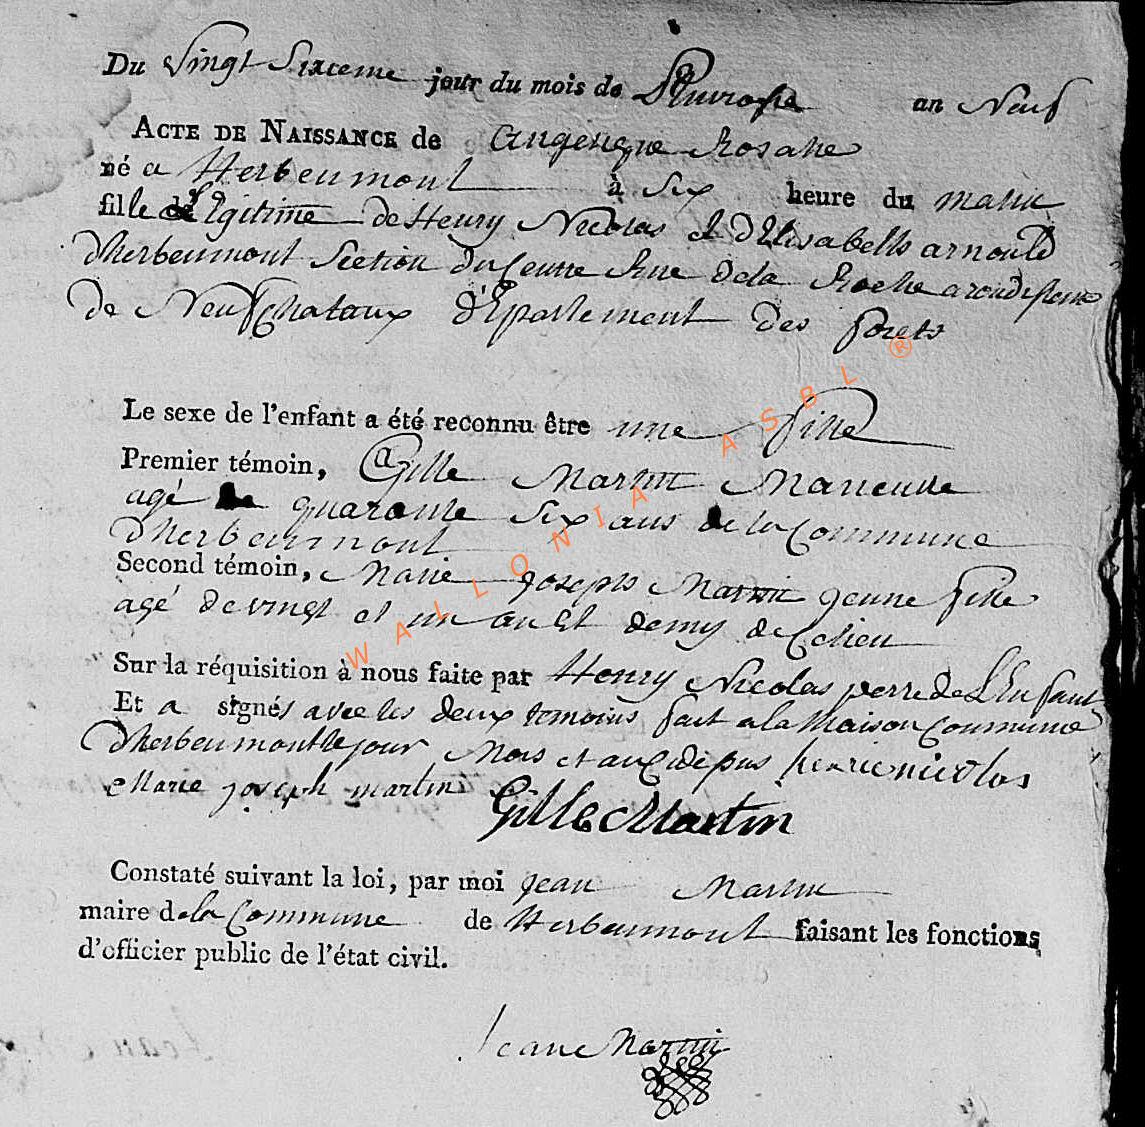 Du Vingt Sixieme jour du mois de Pluviose an Neuf
ACTE DE NAISSANCE de Angelique Rosalie
né a Herbeumont à Six heure du matin
fille Legitime de Henry Nicolas et d'Elisabelle arnould
dherbeumont Section du Centre Rue de la Roche arondisse
de Neufchataux d'Epartement des forets
Le sexe de l'enfant a été reconnu être une fille
Premier témoin, Gille Martin
agé de quarante Six ans de la Commune
dherbeumont
Second témoin, Marie Joseph Martin jeune fille
agé de vingt et un an Et demy de Celieu
Sur la réquisition à nous faite par Henry Nicolas perre de L'Enfant
Et a signés avec les deux temoins fait a la Maison Commune
dherbeumont le jour Mois et an henri nicolas
Marie joseph martin Gille Martin
Constaté suivant la loi, par moi Jean Martin
maire de la Commune de Herbeumont faisant les fonctions
d'officier public de l'état civil.
Jean Martin
WALLONIA ASBL ®